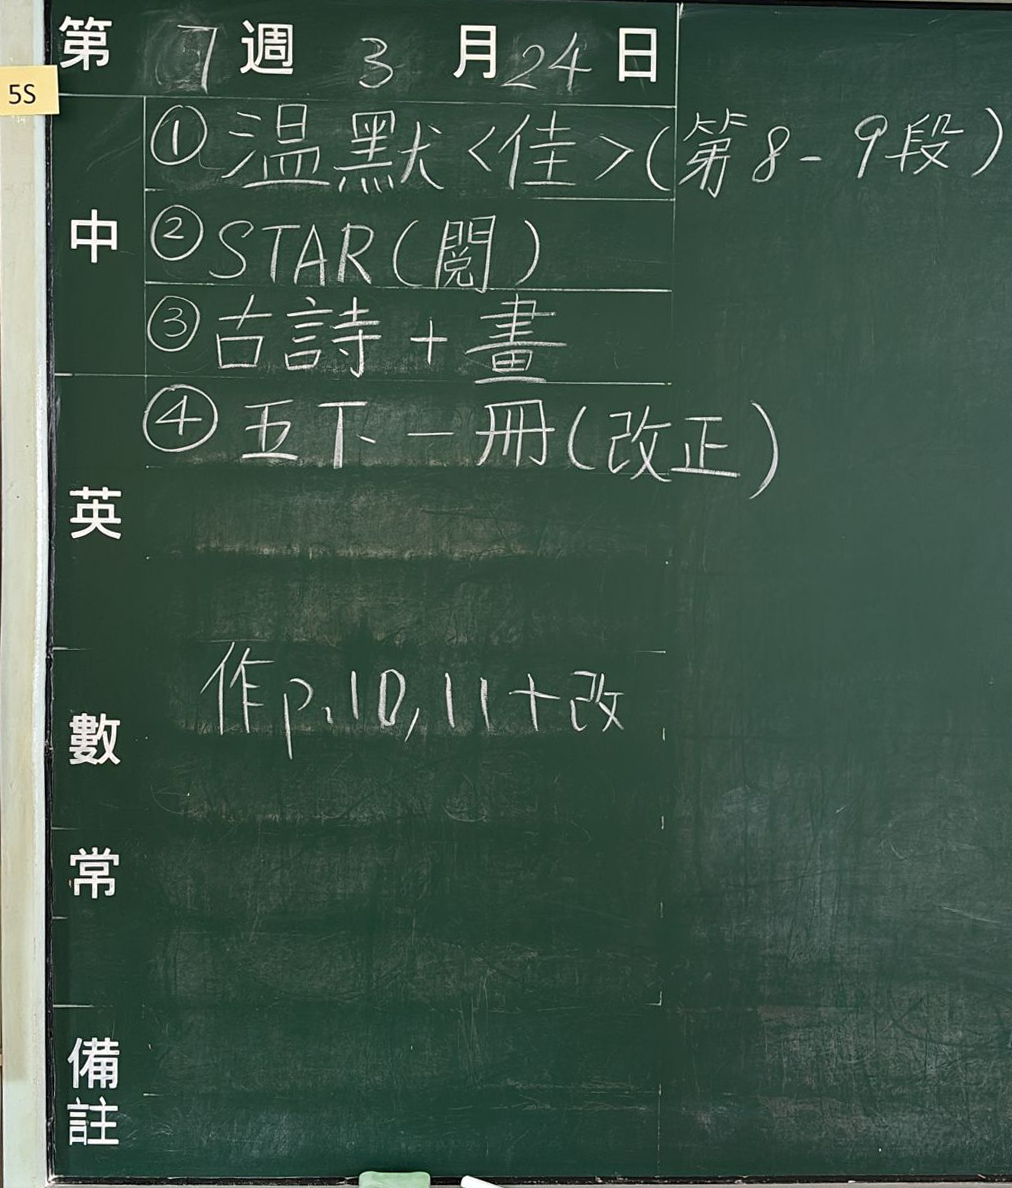 第 7 週 3 月 24 日
5S
中
① 温默<佳>(第8-9段)
② STAR(閱)
③ 古詩+畫
④ 五下一冊(改正)
英
數
作p.10,11+改
常
備註